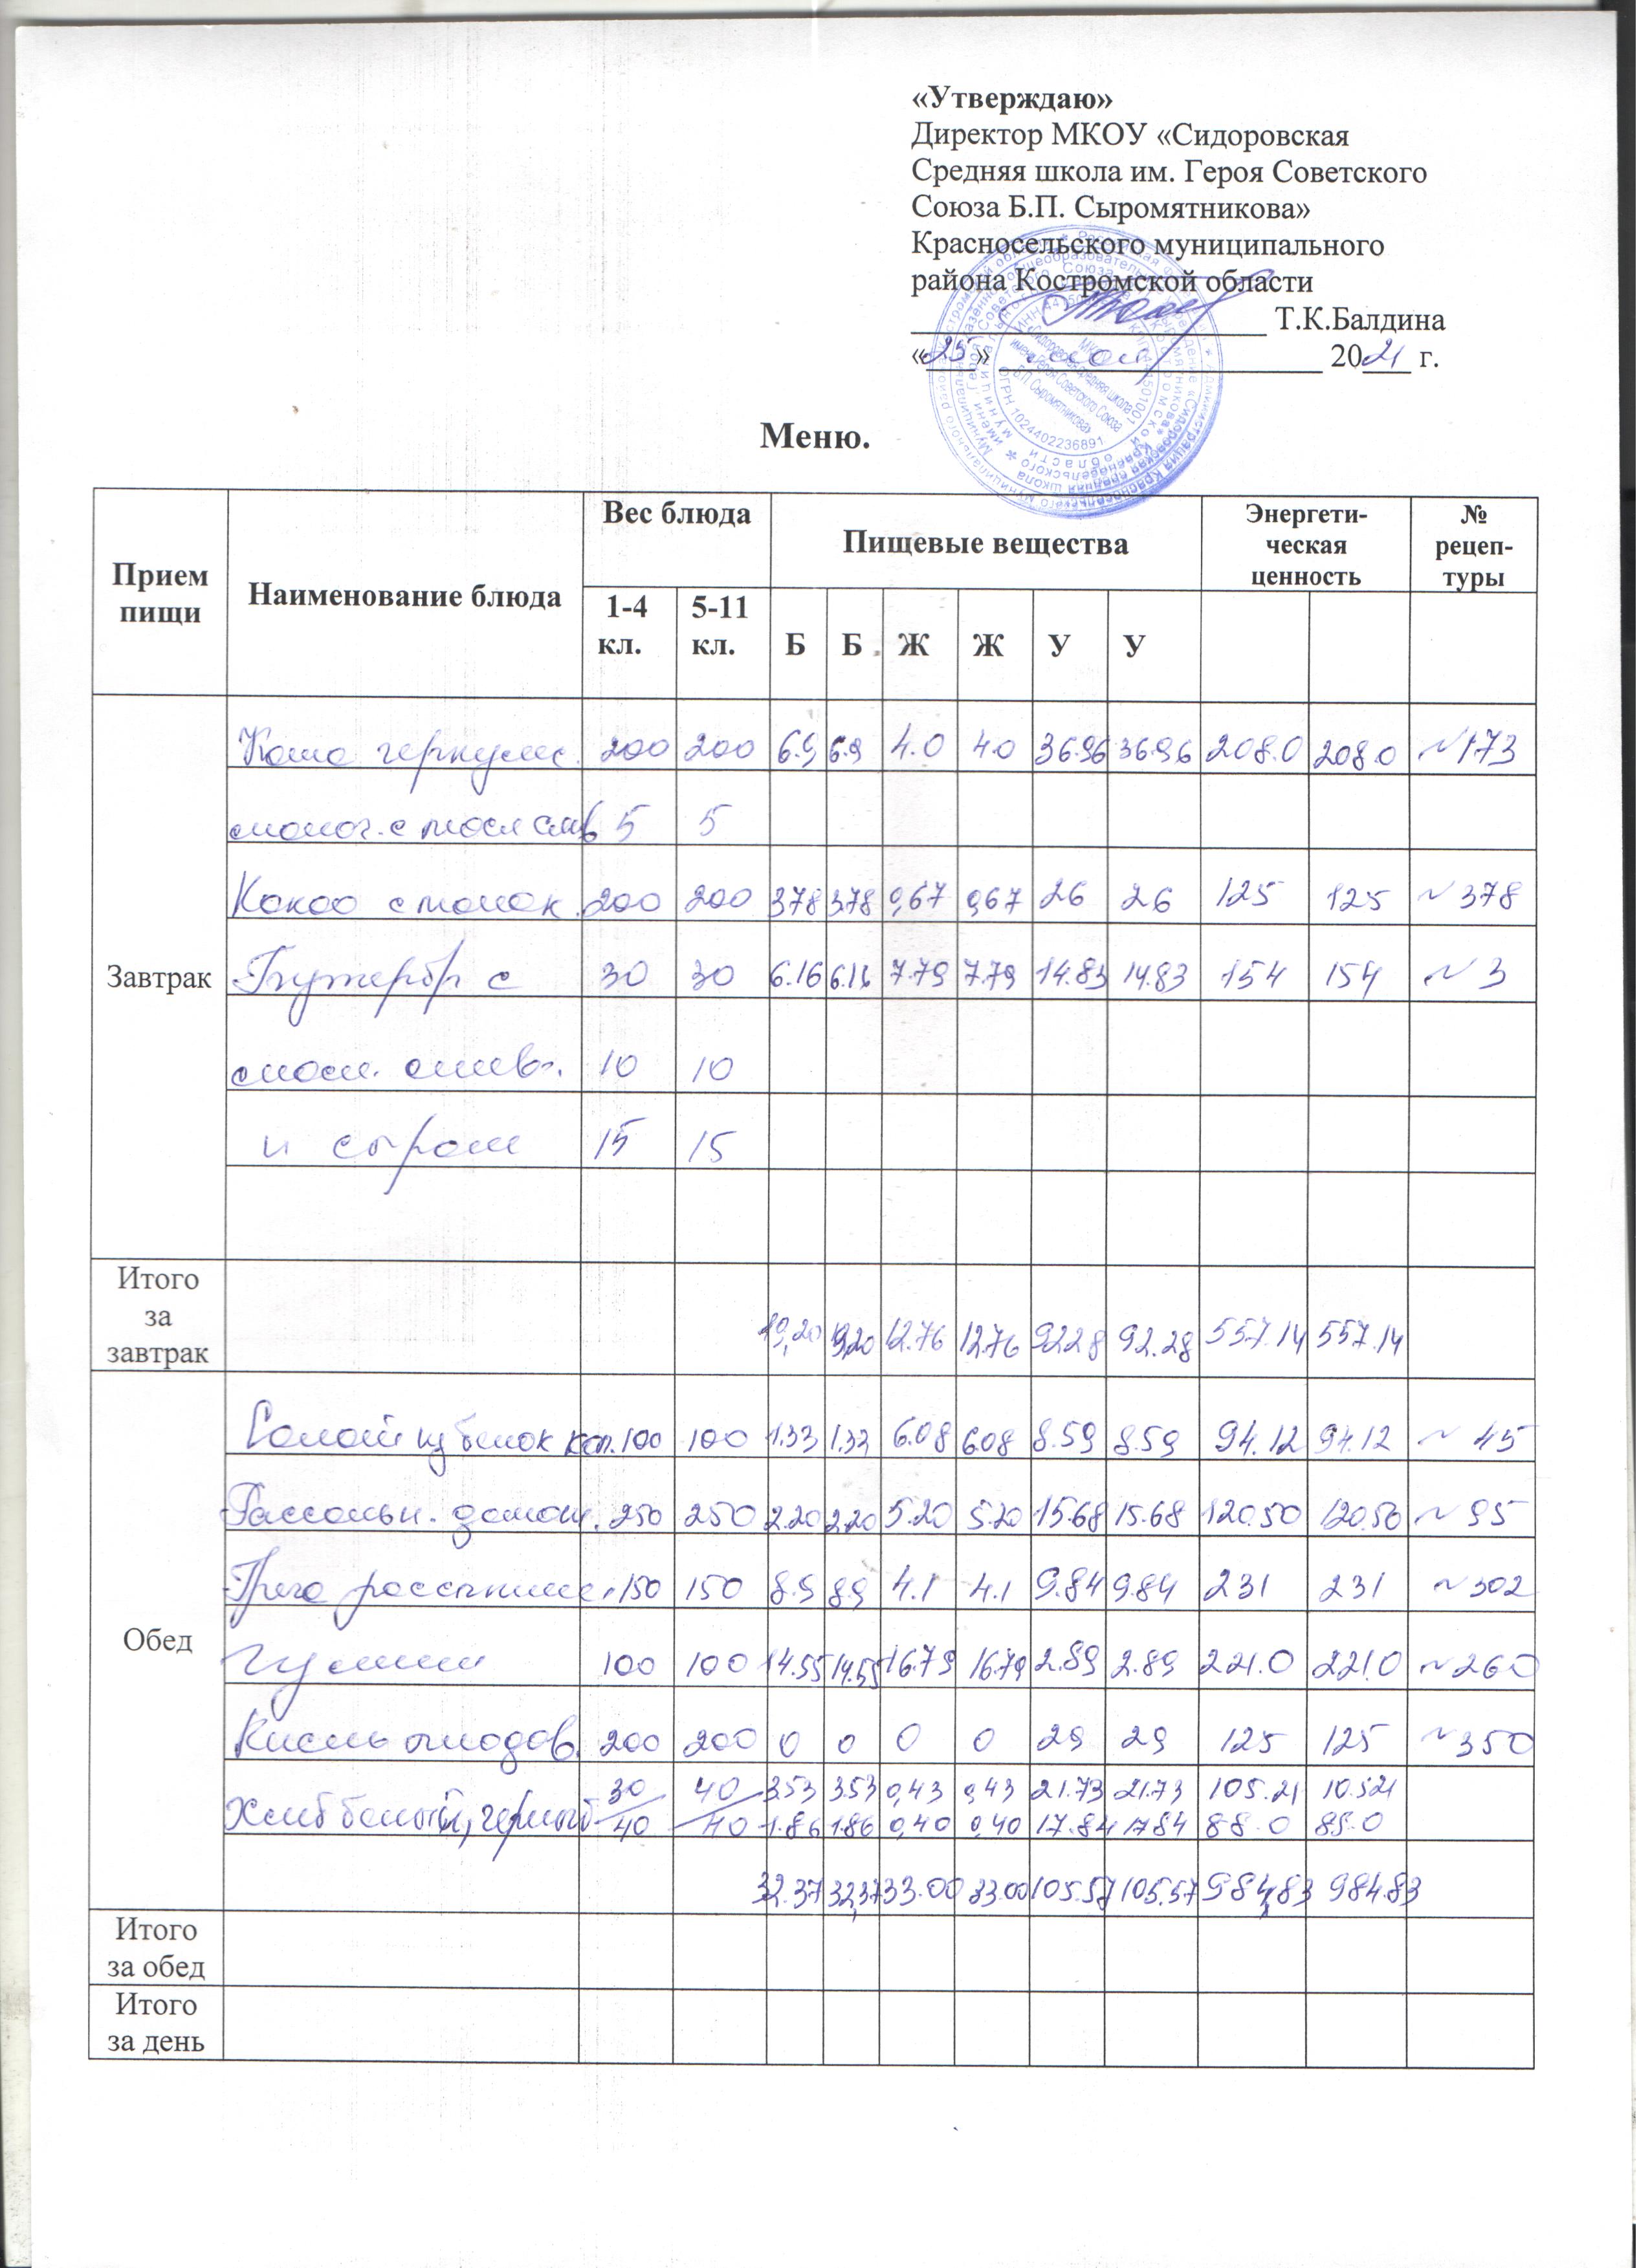 «Утверждаю»
Директор МКОУ «Сидоровская
Средняя школа им. Героя Советского
Союза Б.П. Сыромятникова»
Красносельского муниципального
района Костромской области
Т.К.Балдина
«25» мая 2021 г.
Меню.
Прием пищи Наименование блюда Вес блюда Пищевые вещества Энергети-ческая ценность № рецеп-туры
1-4 кл. 5-11 кл. Б Б Ж Ж У У
Завтрак
Каша геркулес. 200 200 6.9 6.9 4.0 4.0 36.96 36.96 208.0 208.0 ~173
молоч. с масл слив 5 5
Какао с молок. 200 200 3.78 3.78 0,67 0,67 26 26 125 125 ~378
Бутербр с 30 30 6.16 6.16 7.79 7.79 14.83 14.83 154 154 ~3
масл. слив. 10 10
и сыром 15 15
Итого за завтрак 19,20 19,20 12.76 12.76 92.28 92.28 557.14 557.14
Обед
Салат из белок кап. 100 100 1.33 1.33 6.08 6.08 8.59 8.59 94.12 94.12 ~45
Рассольн. домаш. 250 250 2.20 2.20 5.20 5.20 15.68 15.68 120.50 120.50 ~95
Греча рассыпч. 150 150 8.9 8.9 4.1 4.1 9.84 9.84 231 231 ~302
Гуляш 100 100 14.55 14.55 16.79 16.79 2.89 2.89 221.0 221.0 ~260
Кисель плодов. 200 200 0 0 0 0 29 29 125 125 ~350
Хлеб белый, черный 30/40 40/40 3.53 3.53 0,43 0,43 21.73 21.73 105.21 10.521
1.86 1.86 0,40 0,40 17.84 17.84 88.0 88.0
32.37 32,37 33.00 33.00 105.57 105.57 984,83 984.83
Итого за обед
Итого за день
ИНН
ОГРН 1024402236891